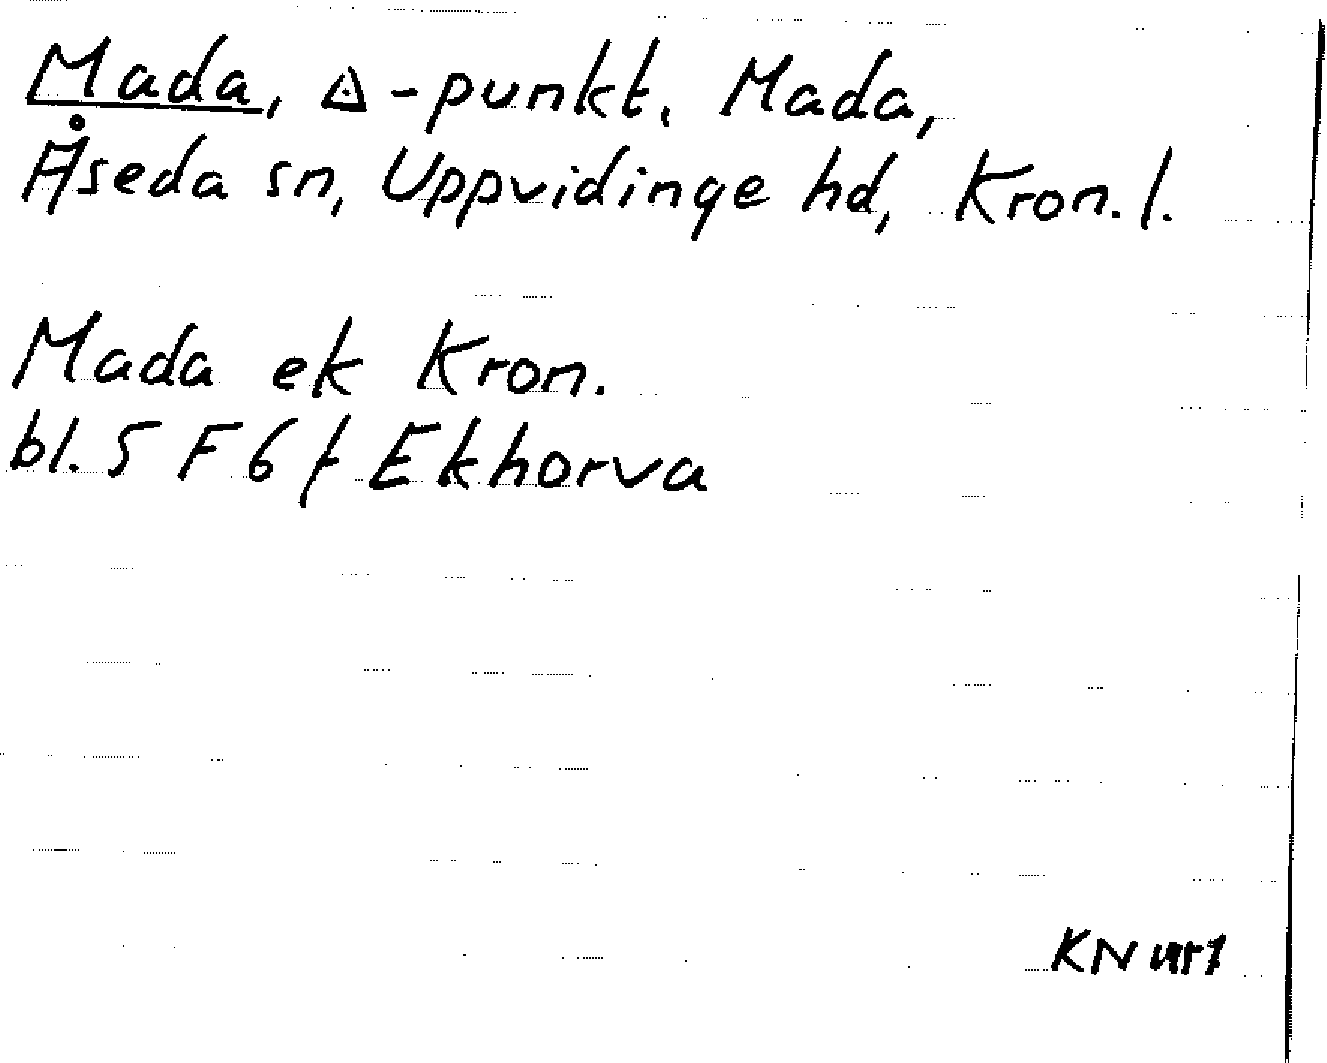 Mada, Δ-punkt. Mada,
Åseda sn, Uppvidinge hd, Kron. l.
Mada ek Kron.
bl. 5 F 6 f Ekhorva
KN